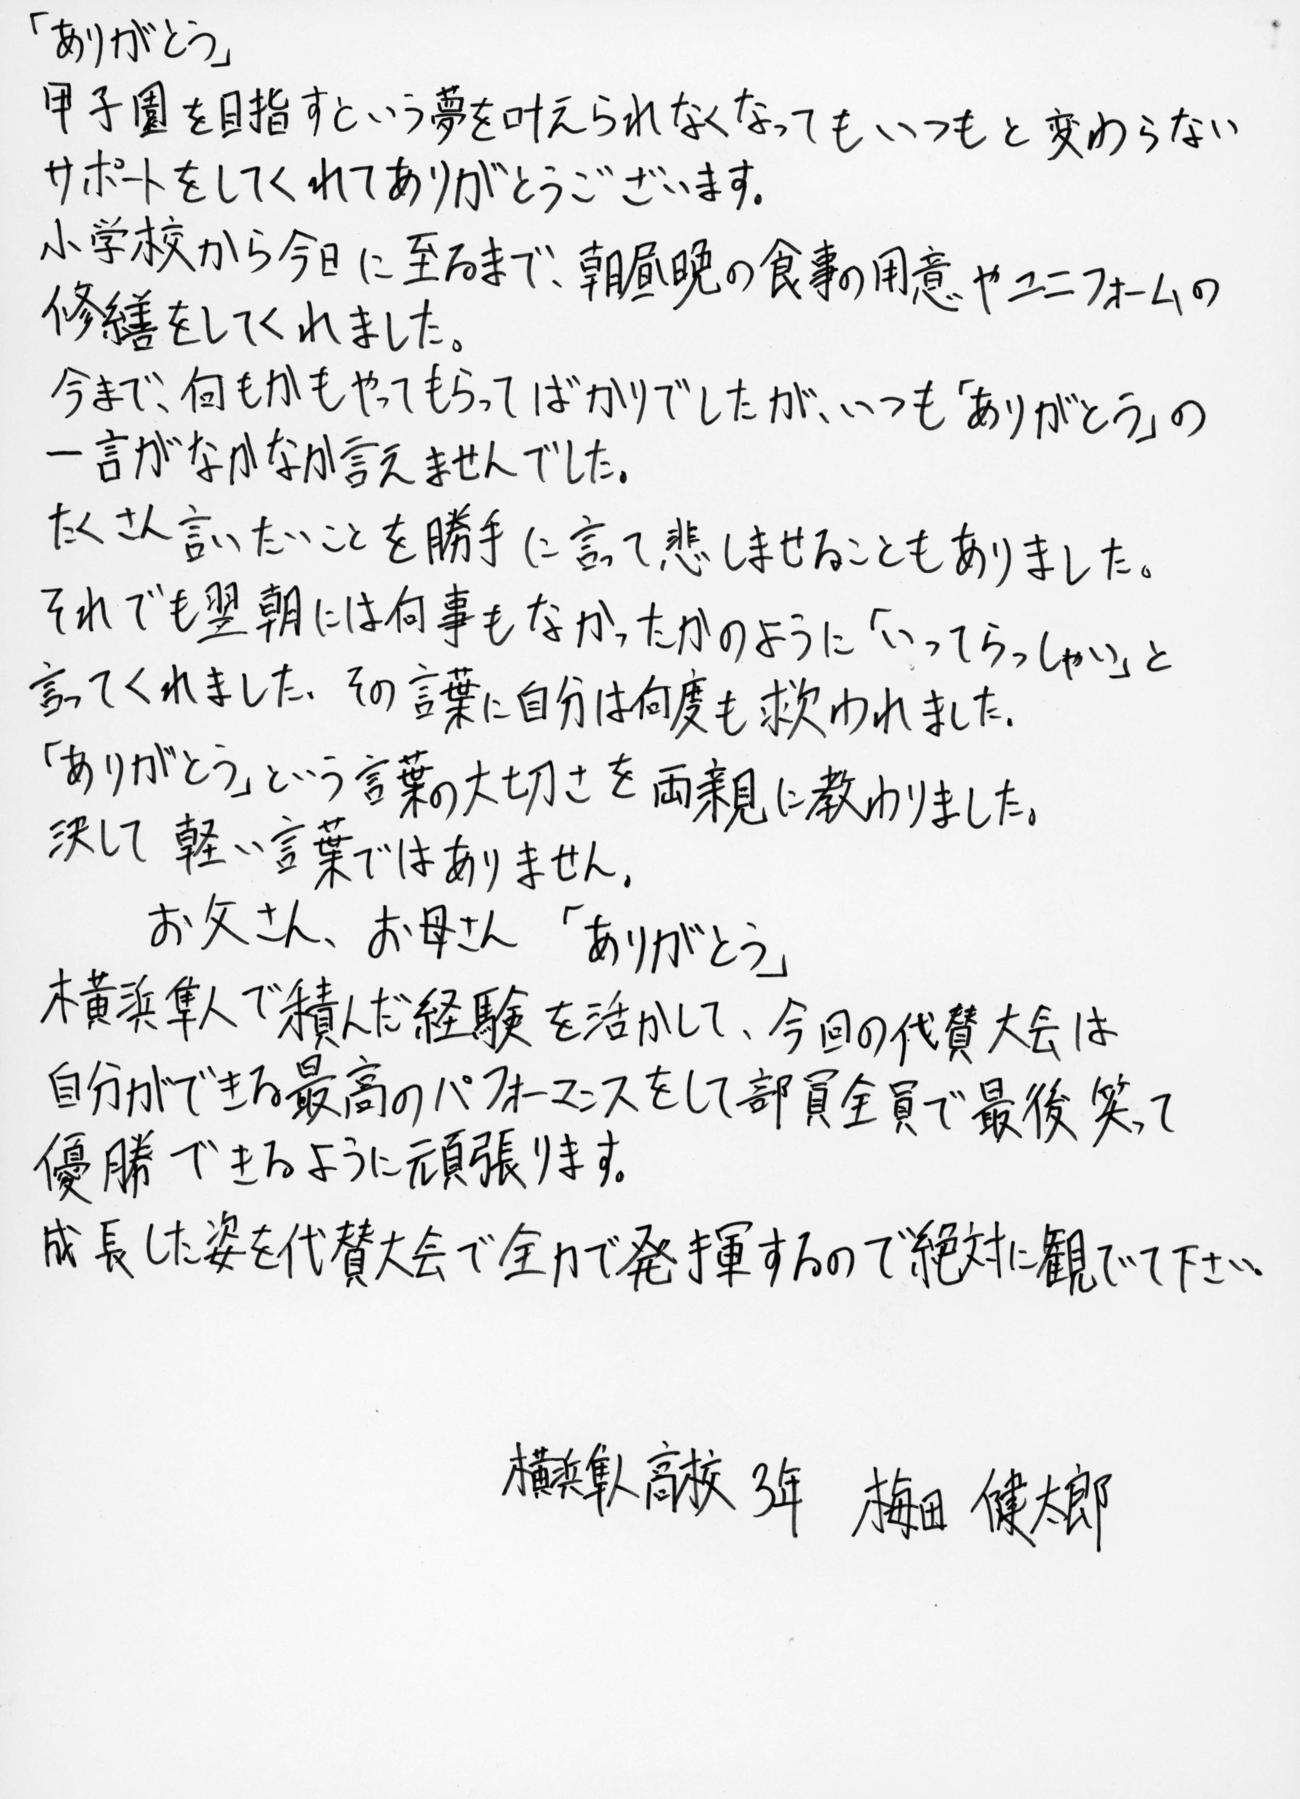 「ありがとう」
甲子園を目指すという夢を叶えられなくなってもいつもと変わらない
サポートをしてくれてありがとうございます。
小学校から今日に至るまで、朝昼晩の食事の用意やユニフォームの
修繕をしてくれました。
今まで、何もかもやってもらってばかりでしたが、いつも「ありがとう」の
一言がなかなか言えませんでした。
たくさん言いたいことを勝手に言って、悲しませることもありました。
それでも翌朝には何事もなかったかのように「いってらっしゃい」と
言ってくれました、その言葉に自分は何度も救われました。
「ありがとう」という言葉の大切さを両親に教わりました。
決して軽い言葉ではありません。
お父さん、お母さん「ありがとう」
横浜隼人で積んだ経験を活かして、今回の代賛大会は
自分ができる最高のパフォーマンスをして部員全員で最後笑って
優勝できるように頑張ります。
成長した姿を代賛大会で全力で発揮するので絶対に観でて下さい。
横浜隼人高校 3年 梅田 健太郎